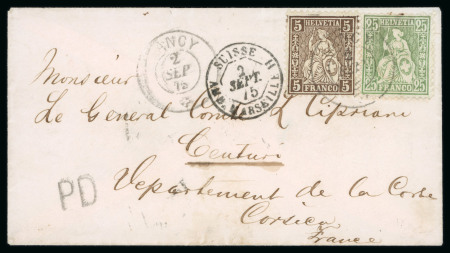 ANCY
2
SEP
SUISSE
2
SEPT.
75
MARSEILLE
HELVETIA
5 5
5 FRANCO 5
HELVETIA
25 25
25 FRANCO 25
Monsieur
Le General Comte L Cipriani
Centuri
PD
Departement de la Corse
Corsica
France